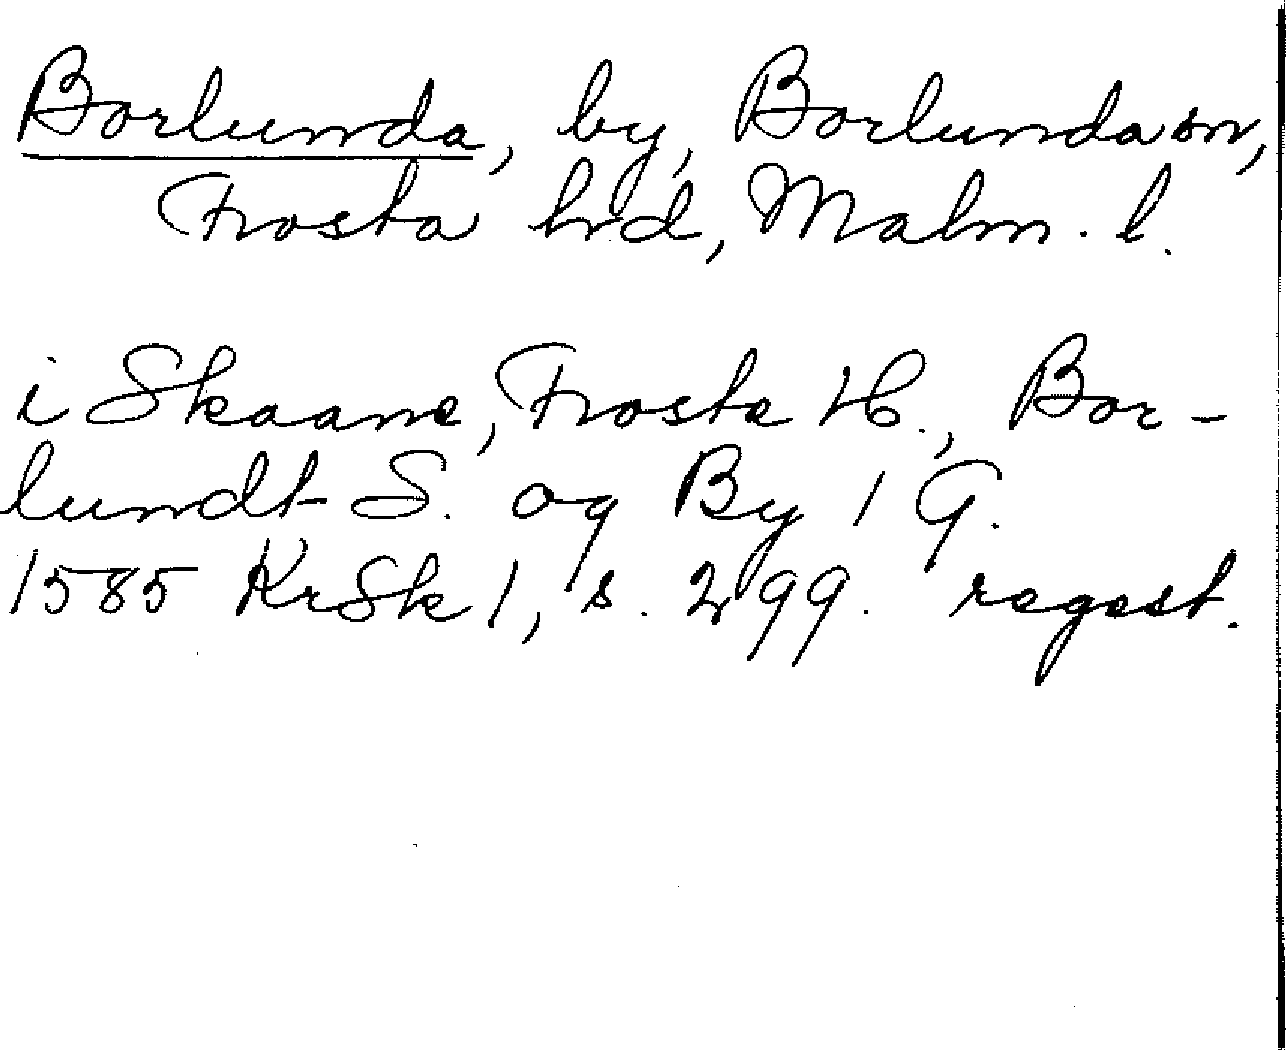 Borlunda, by, Borlunda sn,
Frosta hrd, Malm. l.
i Skaane, Froste H., Bor-
lundt S. og By 1 G.
1585 KrSk 1, s. 299. regest.